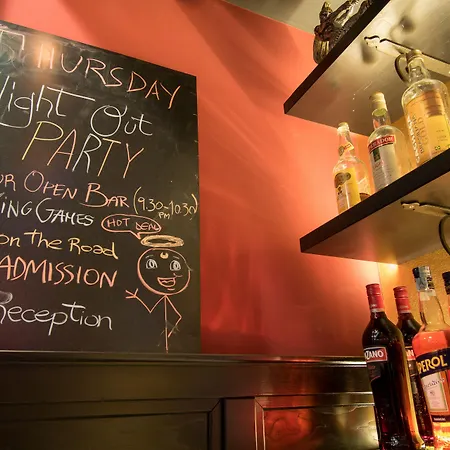 THURSDAY
Night Out
PARTY
OPEN BAR (9.30-10.30)
PM
GAMES HOT DEAL
ON THE ROAD
ADMISSION
RECEPTION
ZANO
PEROL